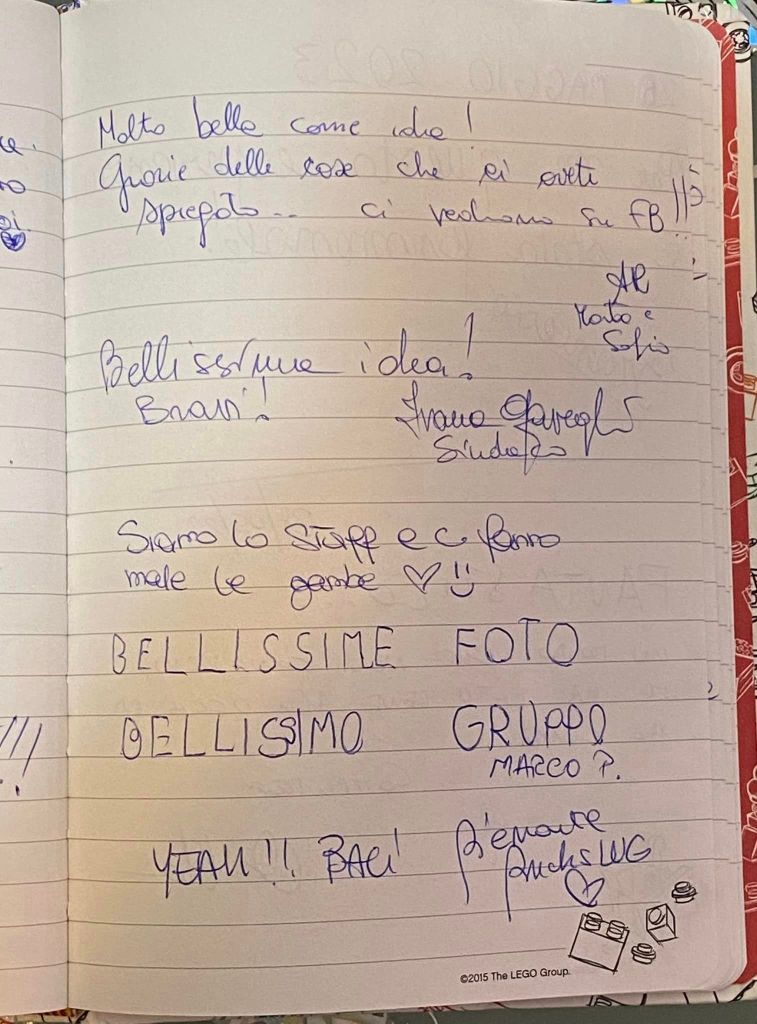 Molto bella come idea!
Grazie delle cose che ci avete
spiegato... ci vediamo su FB!!!
Marta e
Sofia
Bellissima idea!
Bravi!
Ivana
Sindaco
Siamo lo staff e ci fanno
male le gambe ♡
BELLISSIME FOTO
BELLISSIMO GRUPPO
MARCO P.
YEAH!! BACI Piemonte
BricksLUG
♡
©2015 The LEGO Group.